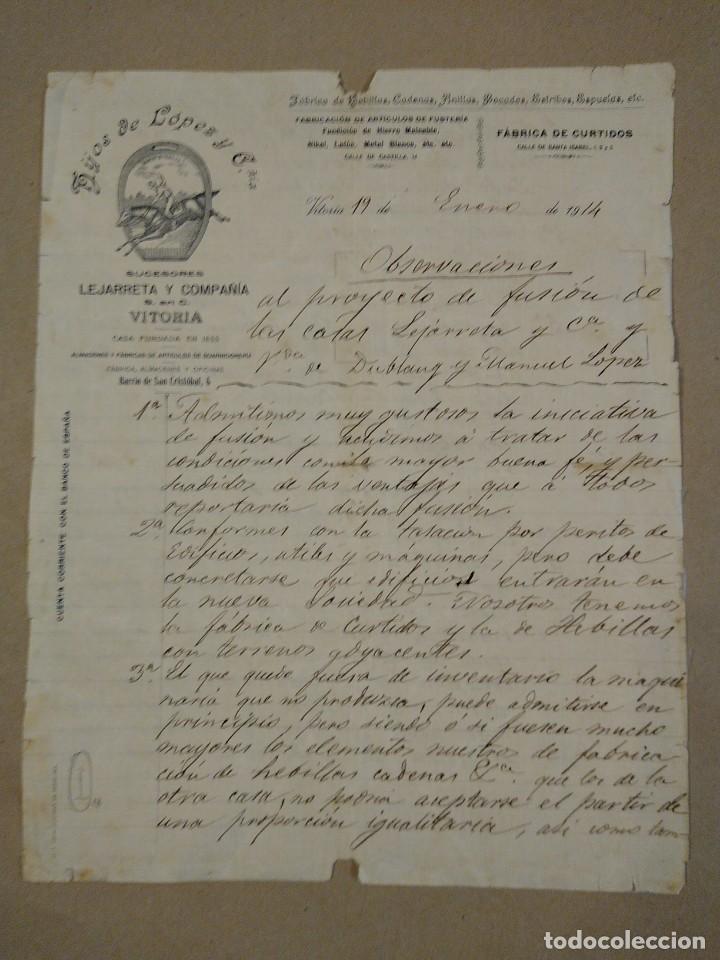 Hijos de Lopez y Cia
SUCESORES
LEJARRETA Y COMPAÑÍA
S. en C.
VITORIA
CASA FUNDADA EN
ALMACENES Y FÁBRICAS DE ARTÍCULOS DE
FÁBRICA, ALMACENES Y OFICINAS
Barrio de San Cristóbal, 6
CUENTA CORRIENTE CON EL BANCO DE ESPAÑA
Fábrica de Hebillas, Cadenas, Anillas, Bocados, Estribos, Espuelas, etc.
FABRICACIÓN DE ARTÍCULOS DE FUSTERÍA
Fundición de Hierro Maleable,
Nikel, Latón, Metal Blanco, Etc. etc.
CALLE DE CASTILLA
FÁBRICA DE CURTIDOS
CALLE DE SANTA ISABEL
Vitoria 19 de Enero de 1914
Observaciones
al proyecto de fusión de
las casas Lejarreta y Cª y
Vda de Dublang y Manuel Lopez
1ª Admitimos muy gustosos la iniciativa
de fusión y acudimos á tratar de las
condiciones con la mayor buena fé, y per-
suadidos de las ventajas que á todos
reportaria dicha fusión.
2ª Conformes con la tasación por peritos de
Edificios, utiles y maquinas, pero debe
concretarse que edificios entrarán en
la nueva Sociedad. Nosotros tenemos
la fábrica de Curtidos y la de Hebillas
con terrenos adyacentes.
3ª El que quede fuera de inventario la maqui
naria que no produzca, puede admitirse en
principio, pero siendo ó si fuesen mucho
mayores los elementos nuestros de fabrica
ción de hebillas cadenas &ª que los de la
otra casa, no podria aceptarse el partir de
una proporción igualitaria, asi como tam-
todocoleccion.net